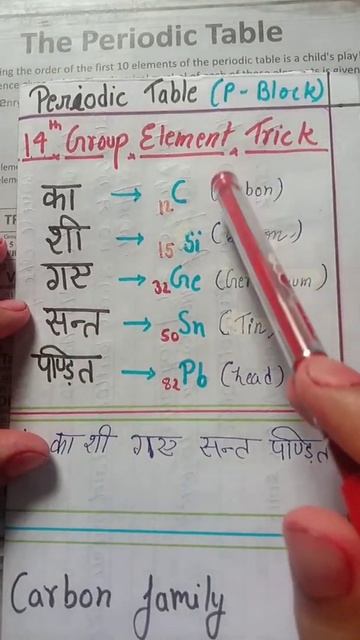 The Periodic Table
ing the order of the first 10 elements of the periodic table is a child's play!
Periodic Table (P-Block)
14th Group Element Trick
का → 12C
शी → 15Si
गए → 32Ge
सन्त → 50Sn (Tin,
पण्डित → 82Pb (head)
का शी गए सन्त पण्डित
Carbon family